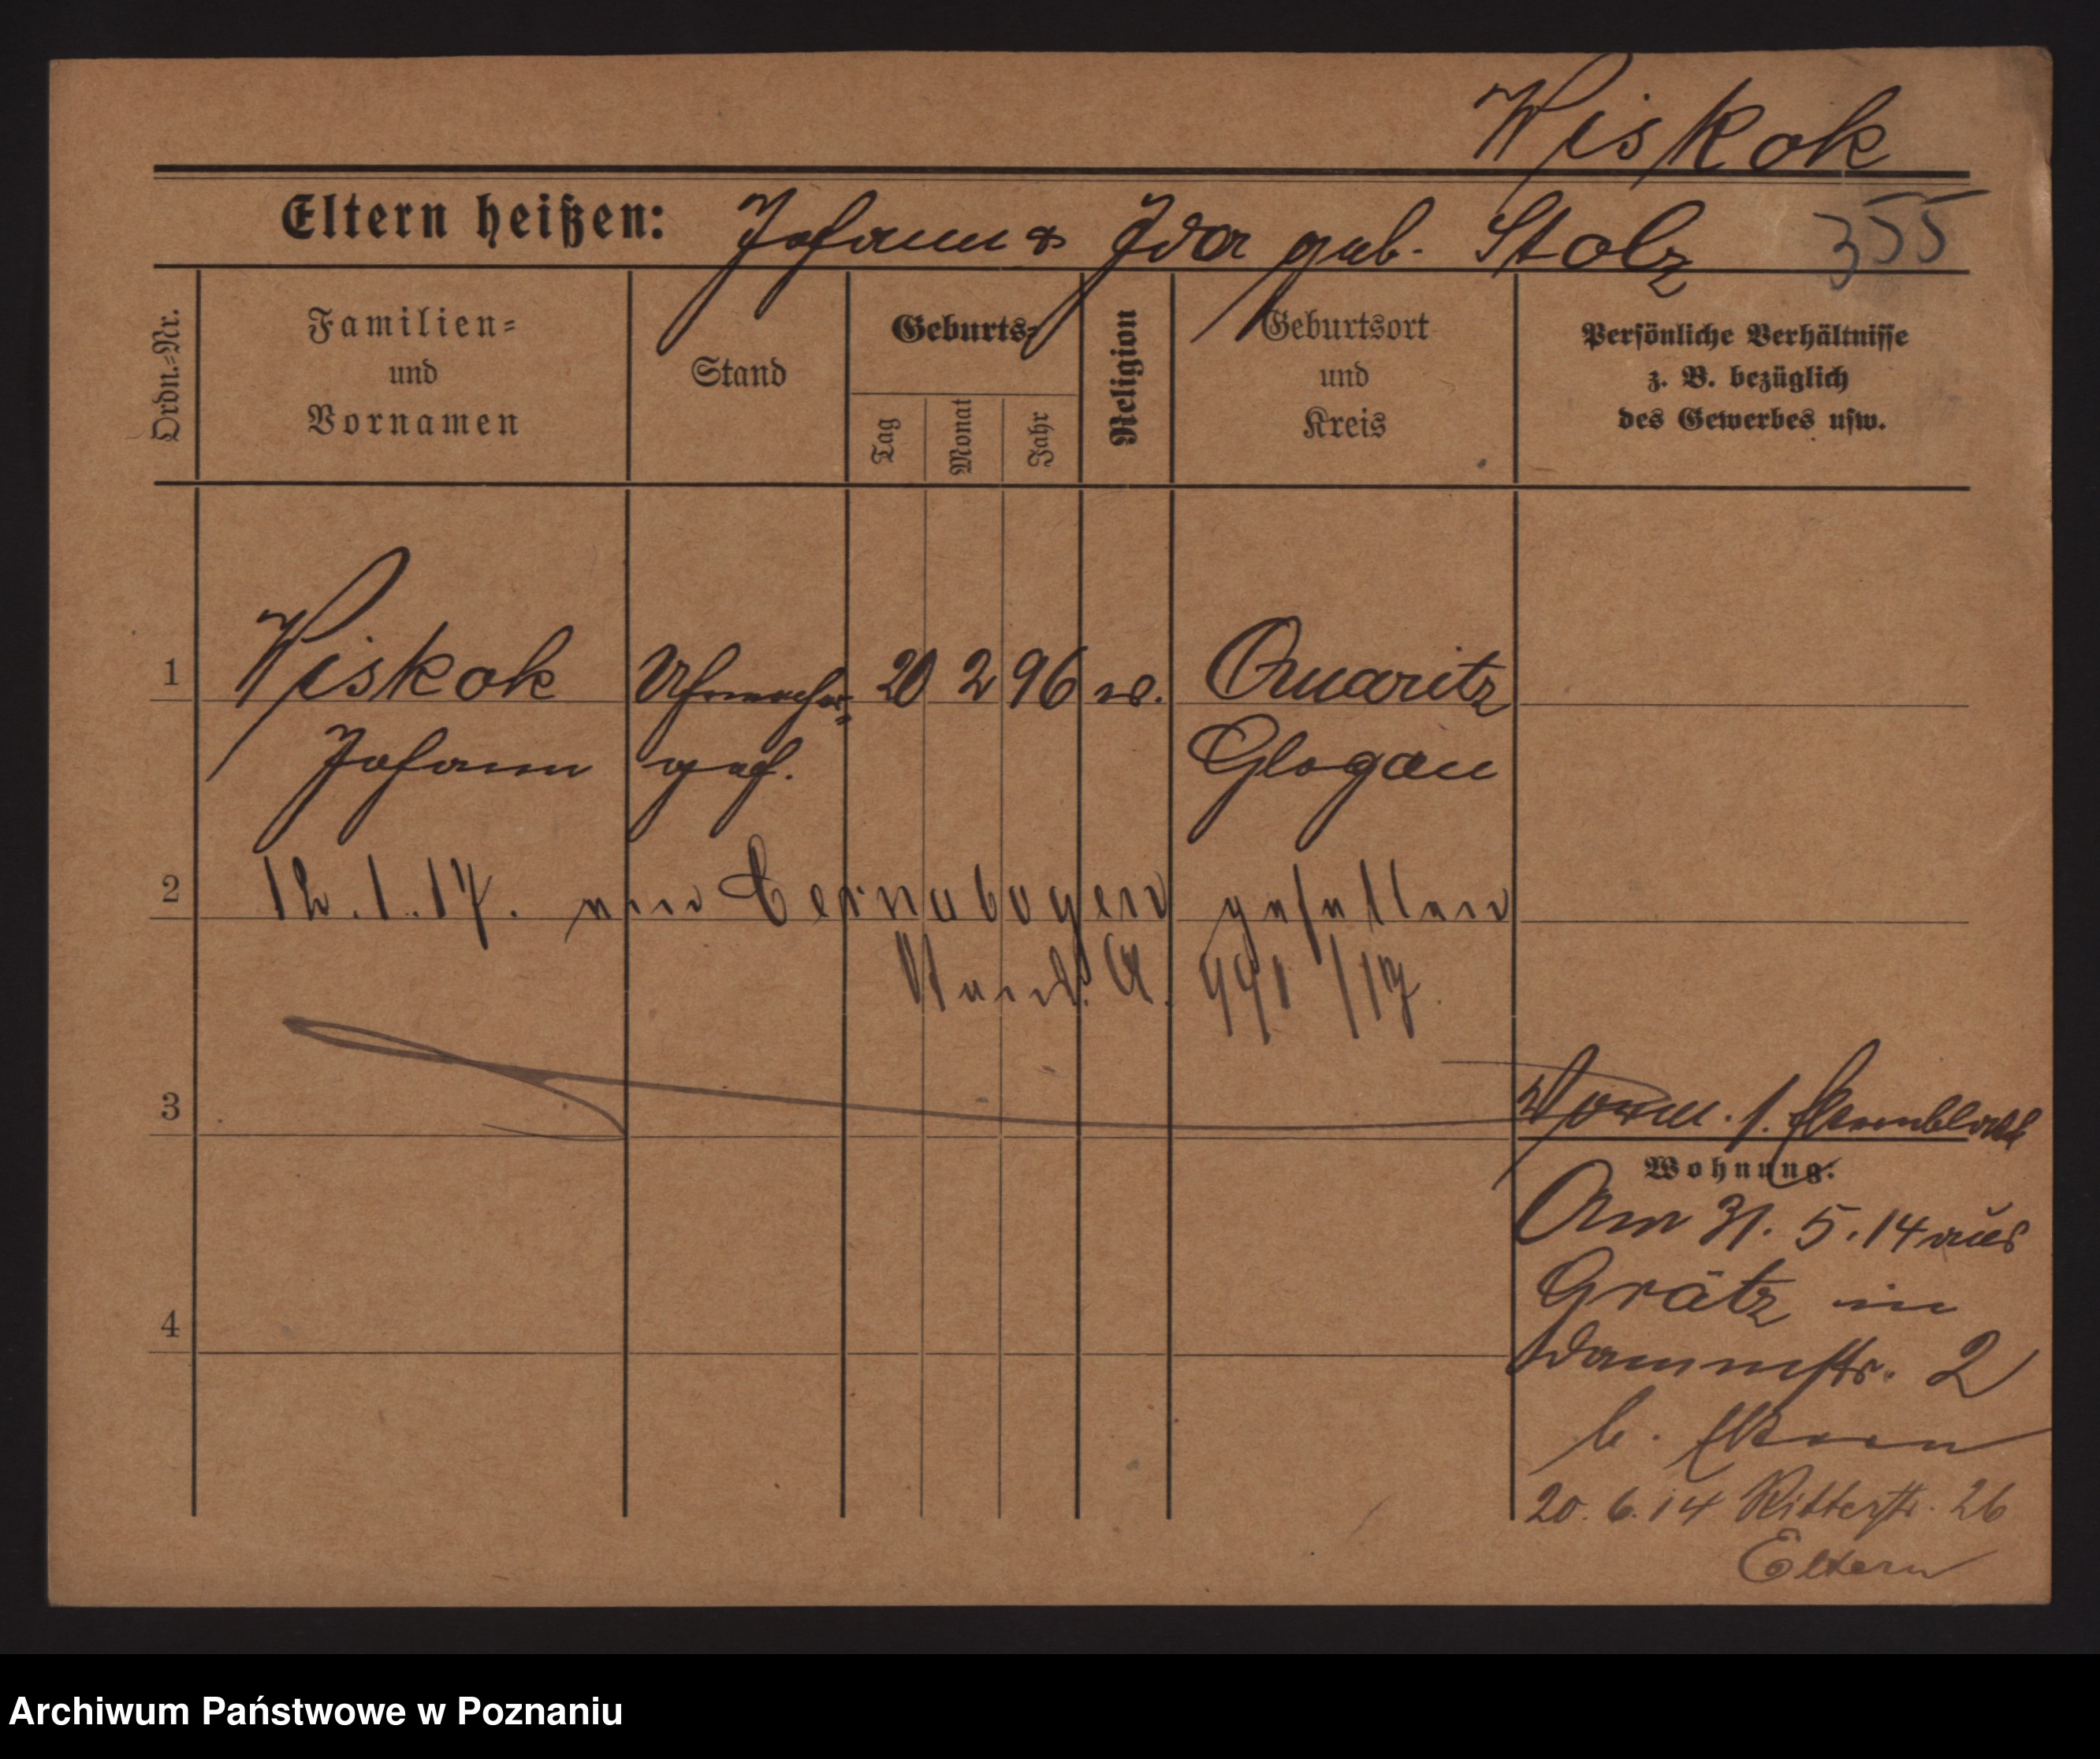 Wiskok
Eltern heißen: Johann & Ida geb. Stolz 355
Ordn.-Nr.
Familien-
und
Vornamen
Stand
Geburts-
Tag
Monat
Jahr
Religion
Geburtsort
und
Kreis
Persönliche Verhältnisse
z. B. bezüglich
des Gewerbes usw.
1 Wiskok Uhrmacher- 20 2 96 Quaritz
Johann geh. Glogau
2 12.1.17. gefallen
/17.
3
Wohnung:
Am 31. 5. 14 aus
Grätz in
4 Dammstr. 2
b.
20. 6. 14 Ritterstr. 26
Eltern
Archiwum Państwowe w Poznaniu